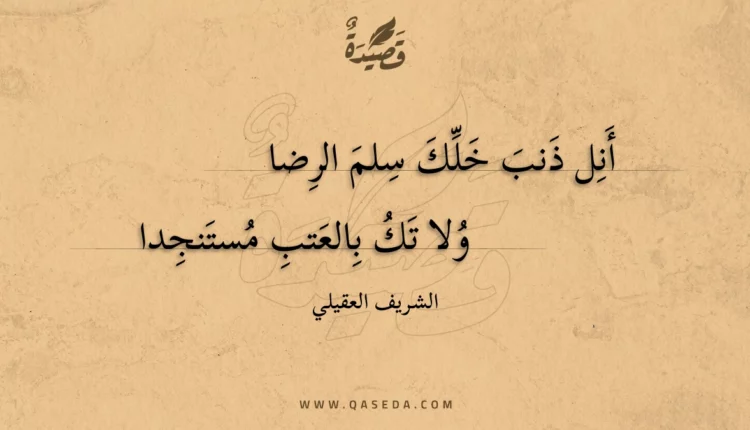 قَصِيدَةٌ
أَنِل ذَنبَ خَلِّكَ سِلمَ الرِضا
وُلا تَكُ بِالعَتبِ مُستَنجِدا
الشريف العقيلي
WWW.QASEDA.COM